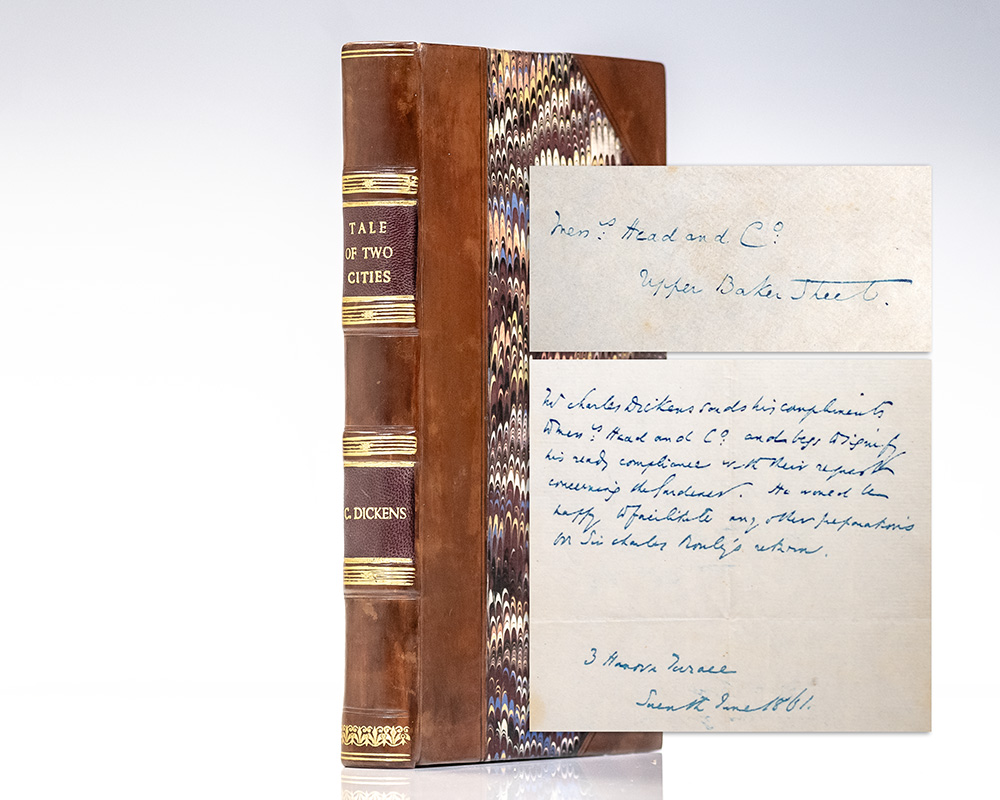 TALE
OF TWO
CITIES
C. DICKENS
Mess.rs Head and Co.
Upper Baker Street.
Mr Charles Dickens sends his compliments
to Mess.rs Head and Co. and begs to signify
his ready compliance with their request
concerning the Gardener. He would be
happy to facilitate any other preparations
for Sir Charles return.
3 Hanover Terrace
June 1861.